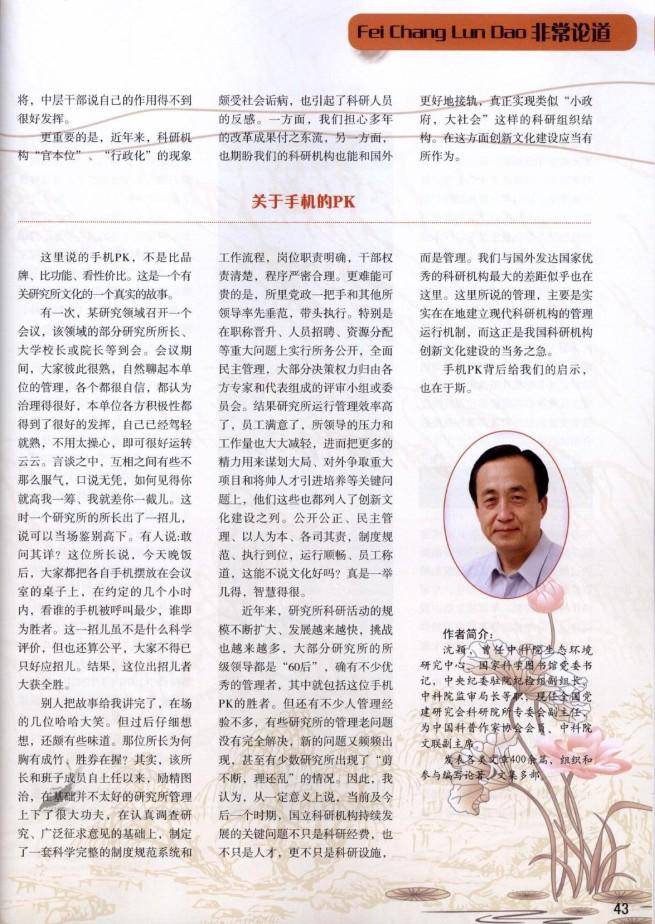 Fei Chang Lun Dao 非常论道
将，中层干部说自己的作用得不到
很好发挥。
更重要的是，近年来，科研机
构“官本位”、“行政化”的现象
颇受社会诟病，也引起了科研人员
的反感。一方面，我们担心多年
的改革成果付之东流，另一方面，
也期盼我们的科研机构也能和国外
更好地接轨，真正实现类似“小政
府，大社会”这样的科研组织结
构。在这方面创新文化建设应当有
所作为。
关于手机的PK
这里说的手机PK，不是比品
牌、比功能、看性价比。这是一个有
关研究所文化的一个真实的故事。
有一次，某研究领域召开一个
会议，该领域的部分研究所所长、
大学校长或院长等到会。会议期
间，大家彼此很熟，自然聊起本单
位的管理，各个都很自信，都认为
治理得很好，本单位各方积极性都
得到了很好的发挥，自己已经驾轻
就熟，不用太操心，即可很好运转
云云。言谈之中，互相之间有些不
那么服气，口说无凭，如何见得你
就高我一筹、我就差你一截儿。这
时一个研究所的所长出了一招儿，
说可以当场鉴别高下。有人说:敢
问其详？这位所长说，今天晚饭
后，大家都把各自手机摆放在会议
室的桌子上，在约定的几个小时
内，看谁的手机被呼叫最少，谁即
为胜者。这一招儿虽不是什么科学
评价，但也还算公平，大家不得已
只好应招儿。结果，这位出招儿者
大获全胜。
别人把故事给我讲完了，在场
的几位哈哈大笑。但过后仔细想
想，还颇有些味道。那位所长为何
胸有成竹、胜券在握？其实，该所
长和班子成员自上任以来，励精图
治，在基础并不太好的研究所管理
上下了很大功夫，在认真调查研
究、广泛征求意见的基础上，制定
了一套科学完整的制度规范系统和
工作流程，岗位职责明确，干部权
责清楚，程序严密合理。更难能可
贵的是，所里党政一把手和其他所
领导率先垂范，带头执行。特别是
在职称晋升、人员招聘、资源分配
等重大问题上实行所务公开，全面
民主管理，大部分决策权力归由各
方专家和代表组成的评审小组或委
员会。结果研究所运行管理效率高
了，员工满意了，所领导的压力和
工作量也大大减轻，进而把更多的
精力用来谋划大局、对外争取重大
项目和将帅人才引进培养等关键问
题上，他们这些也都列入了创新文
化建设之列。公开公正、民主管
理、以人为本、各司其责，制度规
范、执行到位，运行顺畅、员工称
道，这能不说文化好吗？真是一举
几得，智慧得很。
近年来，研究所科研活动的规
模不断扩大、发展越来越快，挑战
也越来越多，大部分研究所的所
级领导都是“60后”，确有不少优
秀的管理者，其中就包括这位手机
PK的胜者。但还有不少人管理经
验不多，有些研究所的管理老问题
没有完全解决，新的问题又频频出
现，甚至有少数研究所出现了“剪
不断，理还乱”的情况。因此，我
认为，从一定意义上说，当前及今
后一个时期，国立科研机构持续发
展的关键问题不只是科研经费，也
不只是人才，更不只是科研设施，
而是管理。我们与国外发达国家优
秀的科研机构最大的差距似乎也在
这里。这里所说的管理，主要是实
实在在地建立现代科研机构的管理
运行机制，而这正是我国科研机构
创新文化建设的当务之急。
手机PK背后给我们的启示，
也在于斯。
作者简介：
沈颖，曾任中科院生态环境
研究中心、国家科学图书馆党委书
记，中央纪委驻院纪检组副组长、
中科院监审局长等职，现任全国党
建研究会科研院所专委会副主任、
为中国科普作家协会会员、中科院
文联副主席。
发表各类文章400余篇，组织和
参与编写论著、文集多部。
43